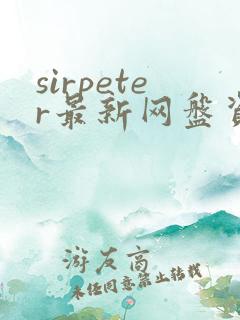 sirpete
r最新网盘资
游友高
未任同意禁止转载